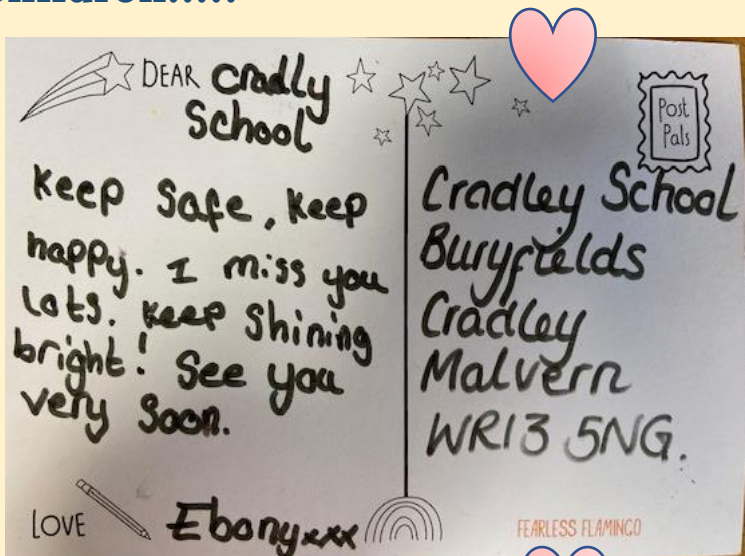 DEAR Cradly
School
Keep Safe, Keep
happy. I miss you
Lots. Keep Shining
bright! See you
very Soon.
LOVE Ebonyxxx
Post
Pals
Cradley School
Buryfields
Cradley
Malvern
WR13 5NG.
FEARLESS FLAMINGO